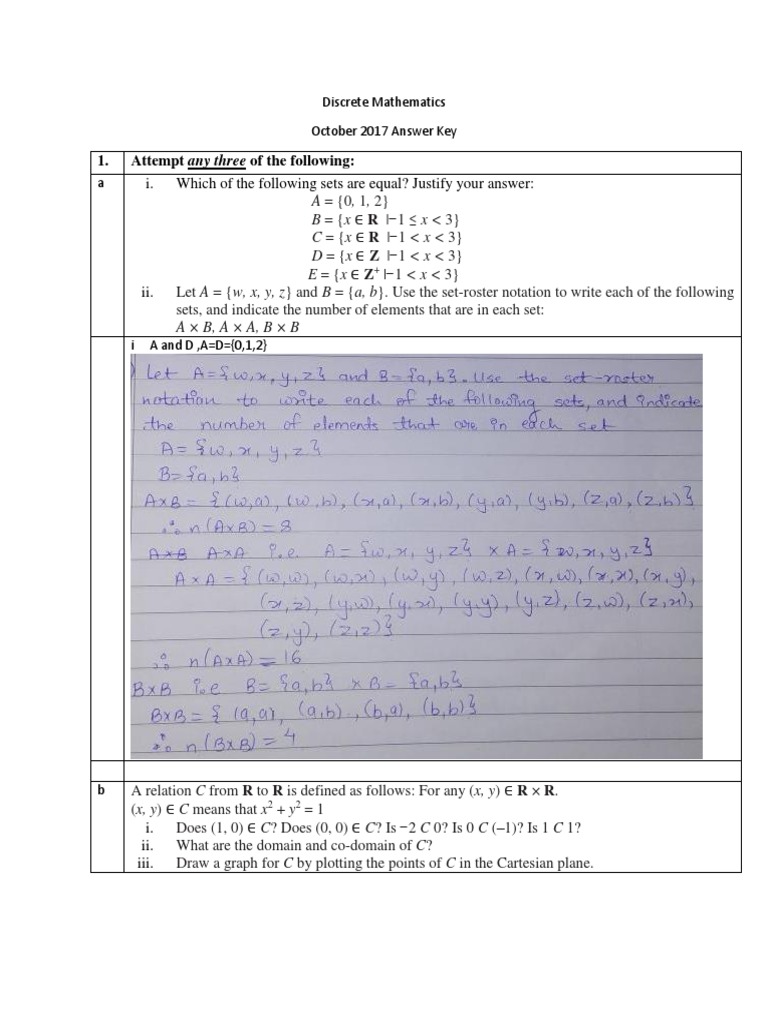 Discrete Mathematics
October 2017 Answer Key
1. Attempt any three of the following:
a i. Which of the following sets are equal? Justify your answer:
A = {0, 1, 2}
B = {x ∈ R |−1 ≤ x < 3}
C = {x ∈ R |−1 < x < 3}
D = {x ∈ Z |−1 < x < 3}
E = {x ∈ Z⁺ |−1 < x < 3}
ii. Let A = {w, x, y, z} and B = {a, b}. Use the set-roster notation to write each of the following
sets, and indicate the number of elements that are in each set:
A × B, A × A, B × B
i A and D ,A=D={0,1,2}
Let A={w,x,y,z} and B={a,b}. Use the set-roster
notation to write each of the following sets, and indicate
the number of elements that are in each set
A = {w, x, y, z}
B= {a,b}
A×B = {(w,a), (w,b), (x,a), (x,b), (y,a), (y,b), (z,a), (z,b)}
∴ n(A×B) = 8
A×B A×A i.e A = {w, x, y, z} × A = {w, x, y, z}
A × A = {(w,w), (w,x), (w,y), (w,z), (x,w), (x,x), (x,y),
(x,z), (y,w), (y,x), (y,y), (y,z), (z,w), (z,x),
(z,y), (z,z)}
∴ n(A×A) = 16
B×B i.e B= {a,b} × B= {a,b}
B×B = { (a,a), (a,b), (b,a), (b,b)}
∴ n(B×B) = 4
b A relation C from R to R is defined as follows: For any (x, y) ∈ R × R.
(x, y) ∈ C means that x² + y² = 1
i. Does (1, 0) ∈ C? Does (0, 0) ∈ C? Is −2 C 0? Is 0 C (–1)? Is 1 C 1?
ii. What are the domain and co-domain of C?
iii. Draw a graph for C by plotting the points of C in the Cartesian plane.